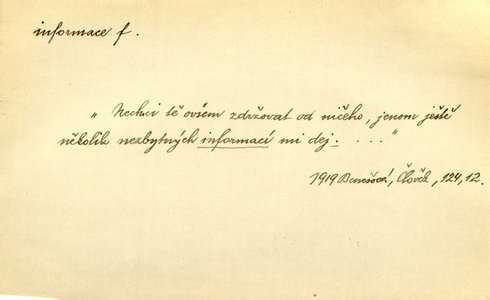 informace f.
„Nechci tě ovšem zdržovat od ničeho, jenom ještě
několik nezbytných informací mi dej. . . .“
1919 Benešová, Člověk, 124, 12.